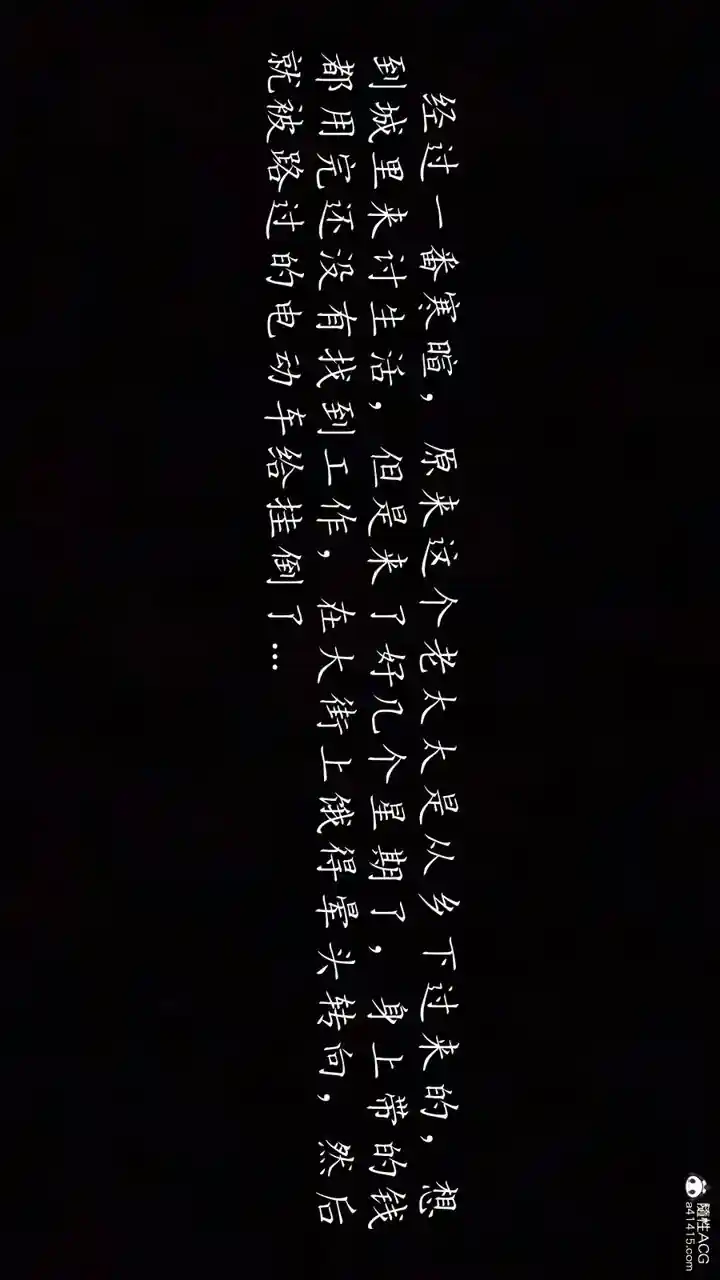 经过一番寒暄，原来这个老太太是从乡下过来的，想
到城里来讨生活，但是来了好几个星期了，身上带的钱
都用完还没有找到工作，在大街上饿得晕头转向，然后
就被路过的电动车给挂倒了...
隨性ACG
a41415.com